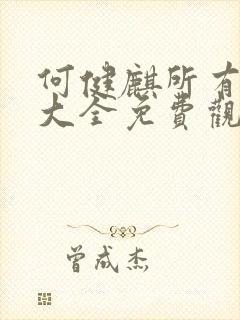 何健麒所有
大全免費觀
曾成杰